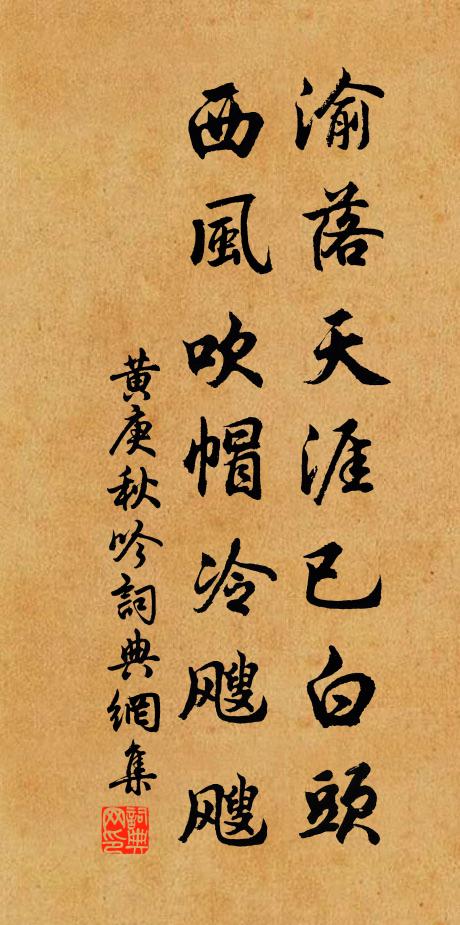 渝落天涯已白頭
西風吹帽冷颼颼
黃庚秋吟詞典網集
詞典網印